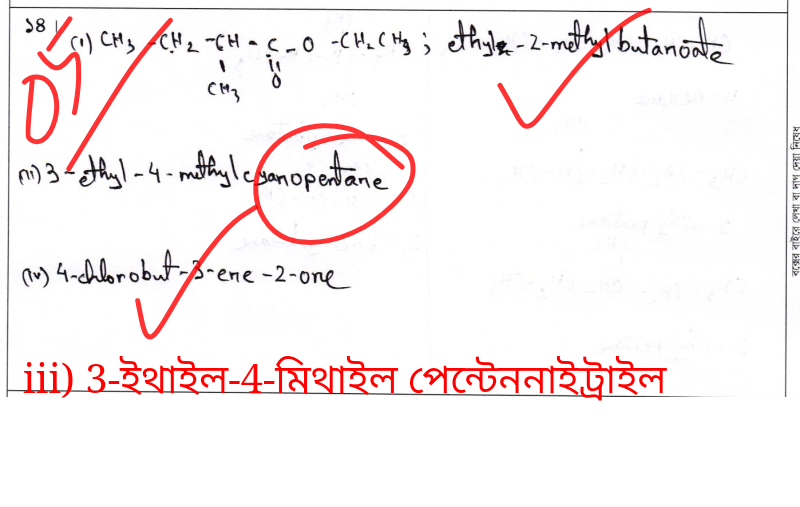 ১৪।
(i) CH3 -CH2 -CH - C - O -CH2CH3 ; ethyl -2-methylbutanoate
CH3 O
(iii) 3-ethyl-4-methylcyanopentane
(iv) 4-chlorobut-3-ene-2-one
iii) 3-ইথাইল-4-মিথাইল পেন্টেননাইট্রাইল
বক্সের বাইরে লেখা বা দাগ দেয়া নিষেধ